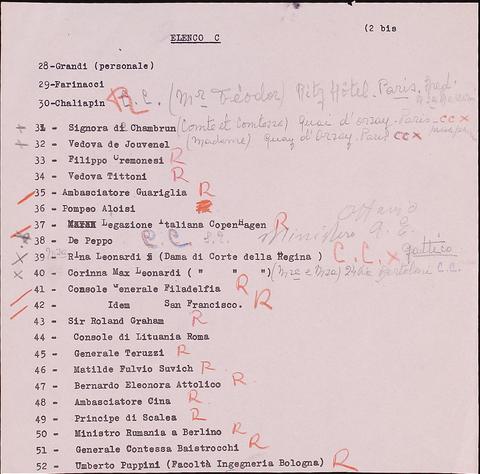 ELENCO C (2 bis
28-Grandi (personale)
29-Farinacci
30-Chaliapin R C.C. (Mr Téodor) Ritz Hôtel. Paris.
31 - Signora di Chambrun (Comte et Comtesse) Quai d'Orsay - Paris - CC X
32 - Vedova de Jouvenel (Madame) Quay d'Orsay. Paris CC X
33 - Filippo Cremonesi R
34 - Vedova Tittoni R
35 - Ambasciatore Guariglia R
36 - Pompeo Aloisi
37 - Legazione Italiana CopenHagen R
38 - De Peppo C.C. Ministero A.E.
39 - Rina Leonardi (Dama di Corte della Regina) C.C. X
40 - Corinna Max Leonardi ( " " " ) C.C.
41 - Console Generale Filadelfia R
42 - Idem San Francisco. R
43 - Sir Roland Graham R
44 - Console di Lituania Roma
45 - Generale Teruzzi R
46 - Matilde Fulvio Suvich R
47 - Bernardo Eleonora Attolico R
48 - Ambasciatore Cina R
49 - Principe di Scalea R
50 - Ministro Rumania a Berlino R
51 - Generale Contessa Baistrocchi R
52 - Umberto Puppini (Facoltà Ingegneria Bologna) R